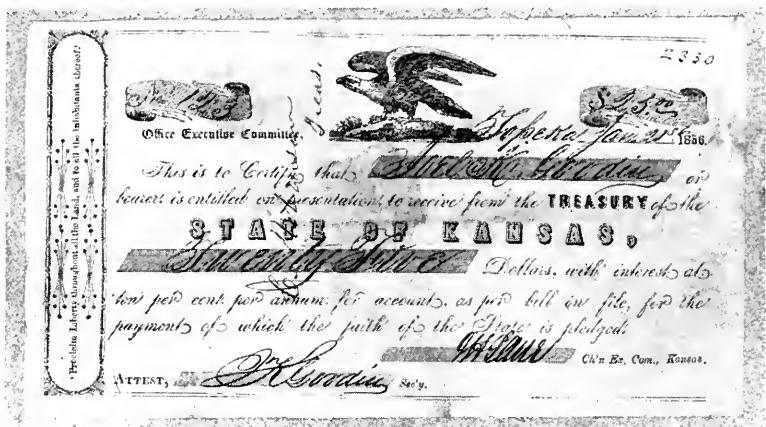 Proclaim Liberty throughout all the Land, and to all the Inhabitants thereof!
2330
No 123
$25.00
Office Executive Committee,
Topeka Jan. 1856.
This is to Certify that Joel K. Goodin or
bearer is entitled on presentation, to receive from the TREASURY of the
STATE OF KANSAS,
Twenty Five Dollars, with interest at
ten per cent per annum: for account, as per bill on file, for the
payment of which the faith of the State is pledged.
J H Lane Ch'n Ex. Com., Kansas.
ATTEST, J K Goodin Sec'y.
Treas.